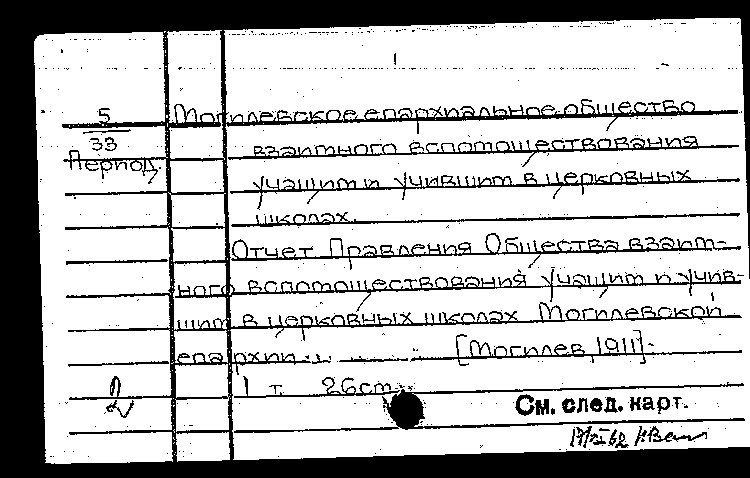 5 Могилевское епархиальное общество
33 взаимного вспомоществования
Период. учащим и учившим в церковных
школах.
Отчет Правления Общества взаим-
ного вспомоществования учащим и учив-
шим в церковных школах Могилевской
епархии... [Могилев, 1911]-
2 1 т. 26см.
См. след. карт.